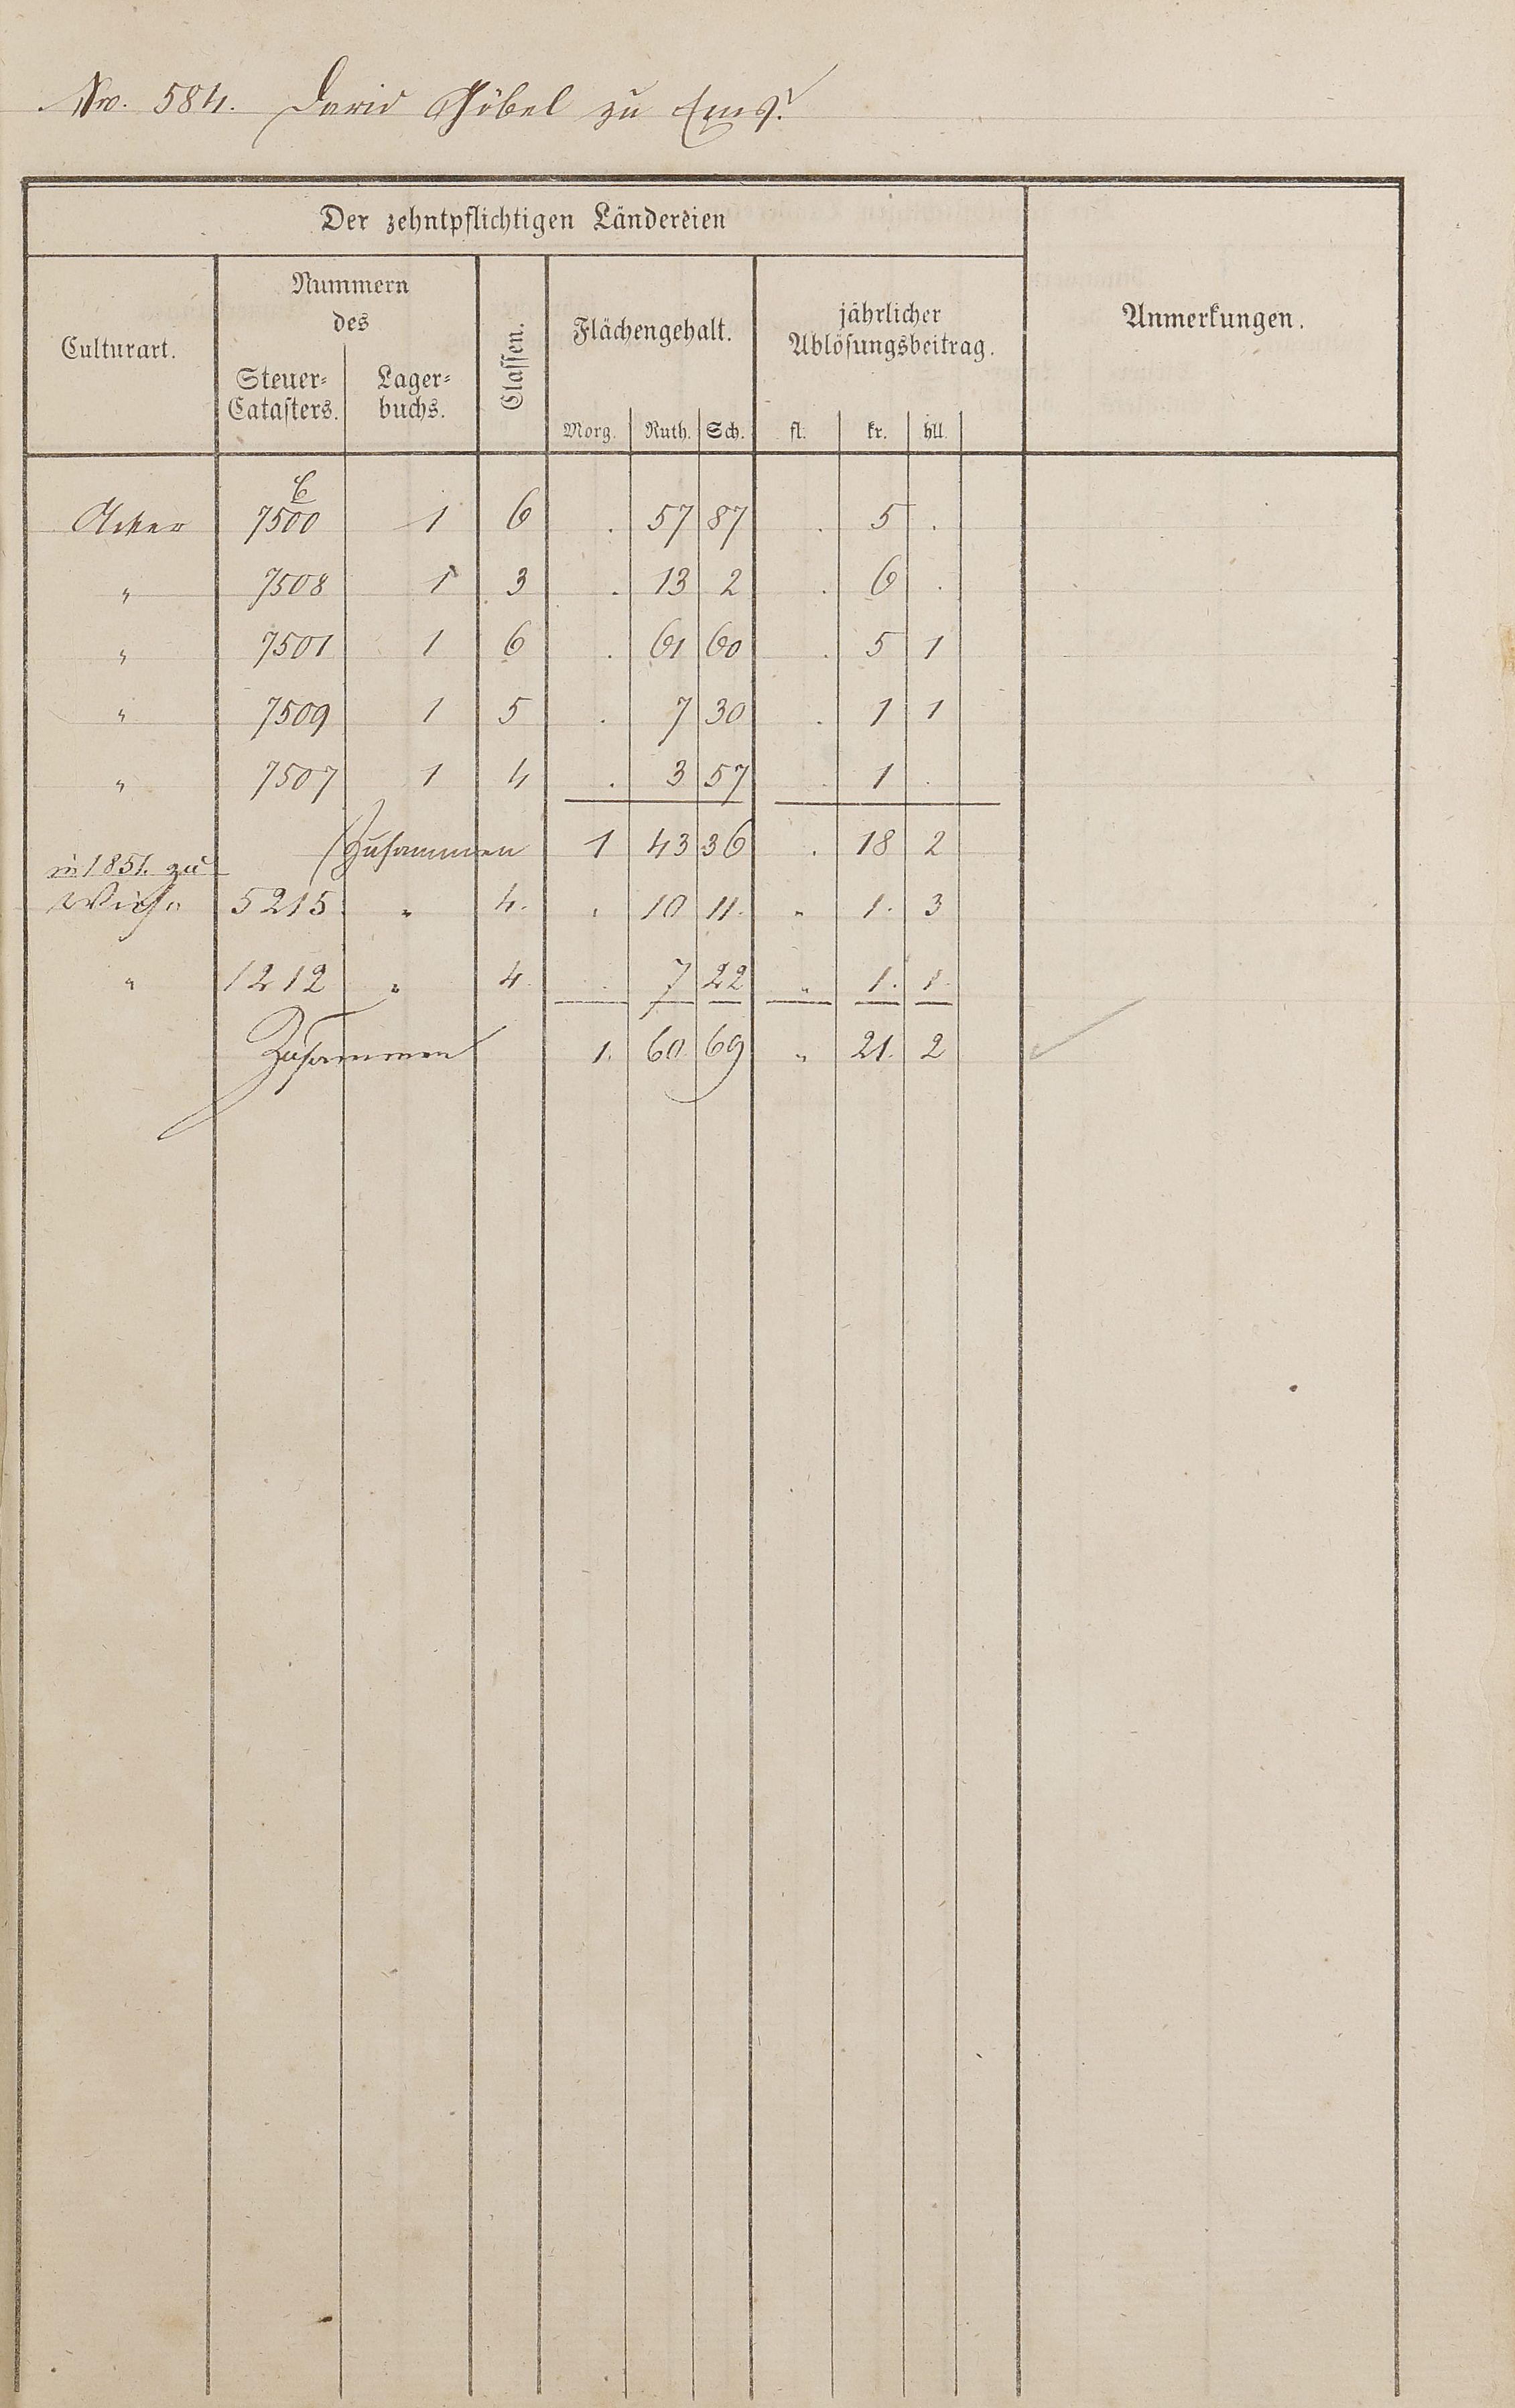 No. 584. David Göbel zu Ems.
Der zehntpflichtigen Ländereien
Culturart.
Nummern
des
Steuer-
Catasters.
Lager-
buchs.
Classen.
Flächengehalt.
Morg. Ruth. Sch.
jährlicher
Ablösungsbeitrag.
fl. kr. hll.
Anmerkungen.
Acker 7500 1 6 . 57 87 . 5 .
" 7508 1 3 . 13 2 . 6 .
" 7501 1 6 . 61 60 . 5 1
" 7509 1 5 . 7 30 . 1 1
" 7507 1 4 . 3 57 . 1 .
Zusammen 1 43 36 . 18 2
in 1851. zu
Wiese 5215 " 4. " 10 11. " 1. 3
" 1212 " 4. . 7 22 " 1. 1.
Zusammen 1. 60. 69 " 21. 2